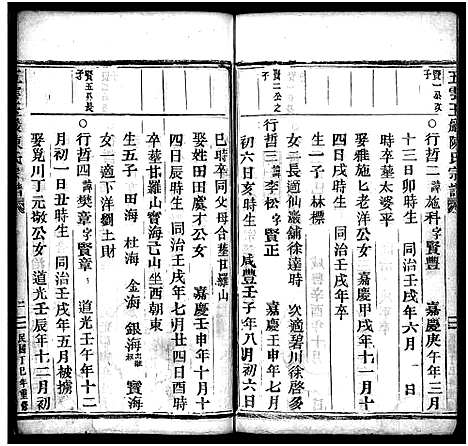 五雲玉巖陳氏宗譜
賢一公次子
○行哲二諱施科字賢豐 嘉慶庚午年三月
十三日卯時生 同治壬戌年六月 日
時卒葬太婆平
娶雅施匕老洋公女 嘉慶甲戌年十一月十
四日戌時生 同治壬戌年卒
生一子 林標
女一長適仙巖舖徐達時 次適碧川徐啓多
賢二公之子
○行哲三諱李松字賢正 嘉慶壬申年七月
初六日亥時生 咸豐壬子年八月初六日
巳時卒同父母合葬甘羅山
娶姓田田虞才公女 嘉慶壬申年十月十
四日辰時生 同治壬戌年七月廿四日午時
卒葬甘羅山寶海己山坐西朝東
生五子 田海 杜海 金海 銀海出繼 寶海
女一適下洋劉土財
賢五公長子
○行哲四諱樊章字賢章 道光壬午年十二
月初一日丑時生 同治壬戌年五月被擄
娶覓川丁元敬公女 道光壬辰年十二月初
二 民國丁巳年重修